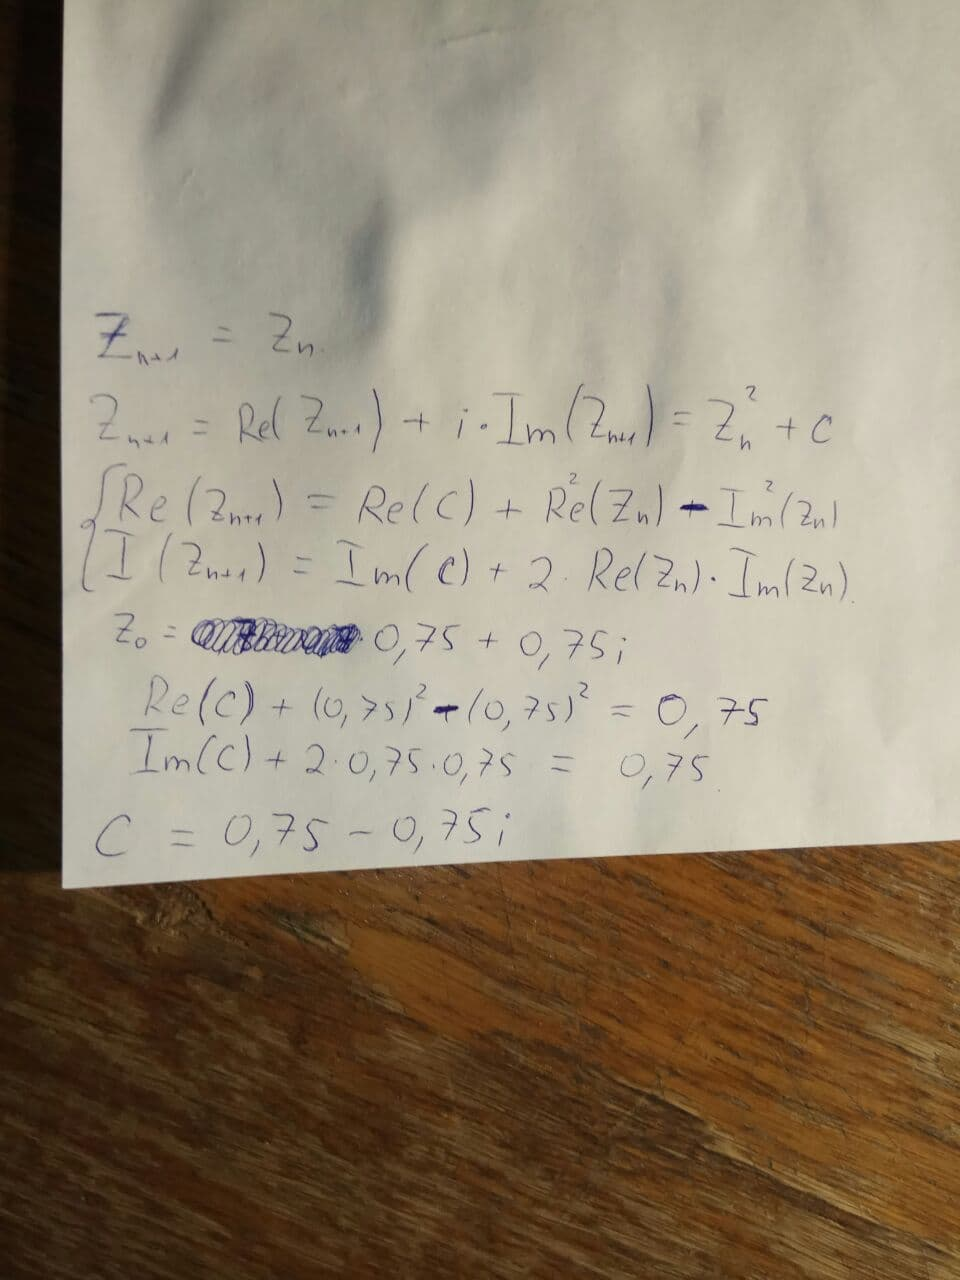 Z_{n+1} = Z_n.
Z_{n+1} = Re(Z_{n+1}) + i·Im(Z_{n+1}) = Z_n^2 + C
{ Re(Z_{n+1}) = Re(C) + Re^2(Z_n) - Im^2(Z_n)
{ I(Z_{n+1}) = Im(C) + 2·Re(Z_n)·Im(Z_n).
Z_0 = 0,75 + 0,75i
Re(C) + (0,75)^2 - (0,75)^2 = 0,75
Im(C) + 2·0,75·0,75 = 0,75
C = 0,75 - 0,75i